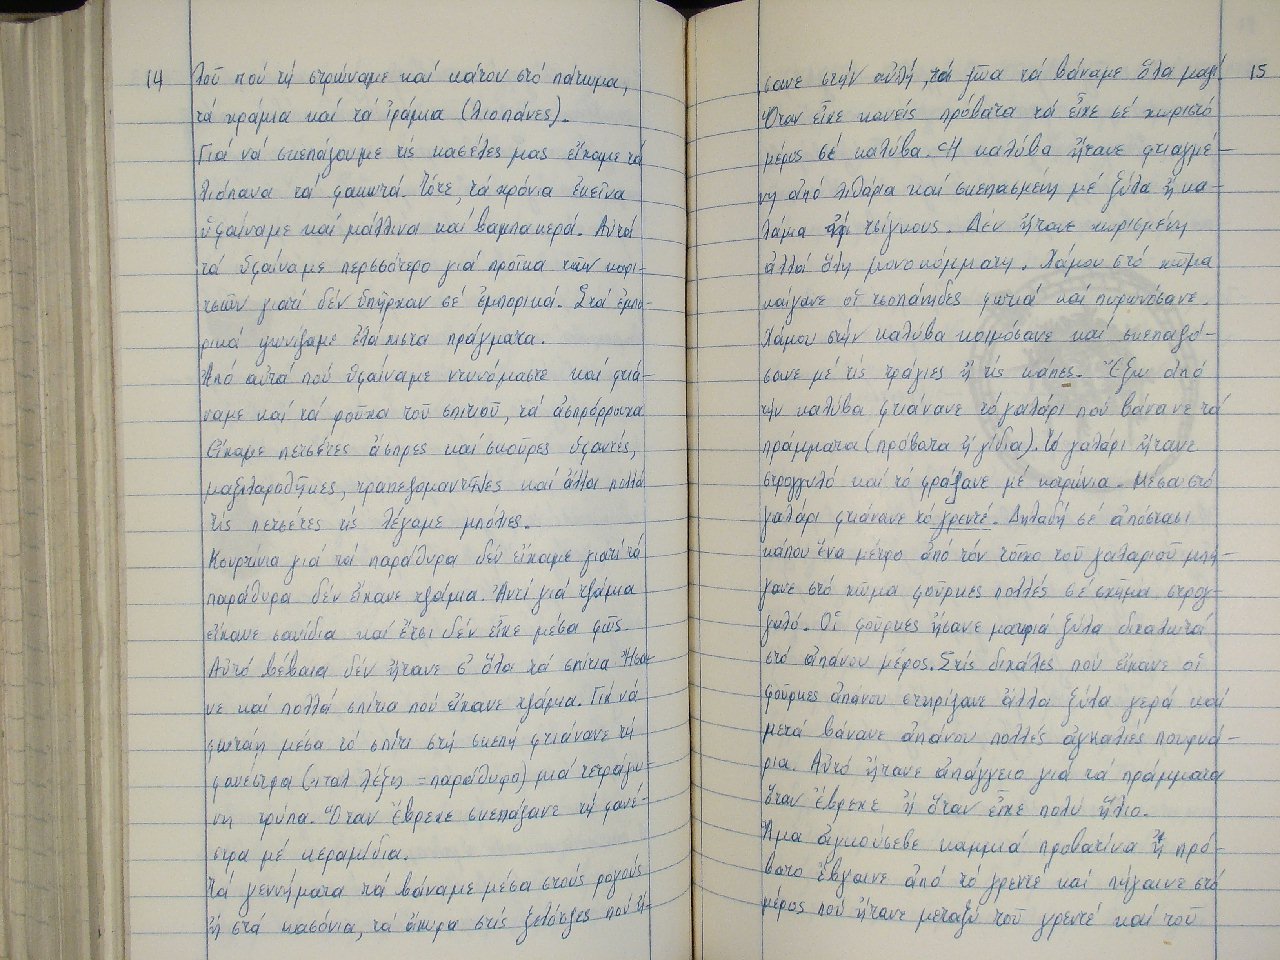 14
λοῦ πού τή στρώναμε καί κάτου στό πάτωμα,
τά χράμια καί τά ἰράμια (λιοπάνες).
Γιά νά σκεπάζουμε τίς κασέλες μας εἴχαμε τά
λιόπανα τά φακωτά. Τότε, τά χρόνια ἐκεῖνα
ὑφαίναμε καί μάλλινα καί βαμπακερά. Αὐτά
τά ὑφαίναμε περσσότερο γιά προῖκα τῶν κορι-
τσιῶν γιατί δέν ὑπῆρχαν σέ ἐμπορικά. Στά ἐμπο-
ρικά ψωνίζαμε ἐλάχιστα πράγματα.
Ἀπό αὐτά πού ὑφαίναμε ντυνόμαστε καί φκιά-
ναμε καί τά ροῦχα τοῦ σπιτιοῦ, τά ἀσπρόρρουχα
Εἴχαμε πετσέτες ἄσπρες καί σκοῦρες ὑφαντές,
μαξιλαροθῆκες, τραπεζομαντῆλες καί ἄλλα πολλά
τίς πετσέτες τίς λέγαμε μπόλιες.
Κουρτίνια γιά τά παράθυρα δέν εἴχαμε γιατί τά
παράθυρα δέν εἴχανε τζάμια. Ἀντί γιά τζάμια
εἴχανε σανίδια καί ἔτσι δέν εἶχε μέσα φῶς
Αὐτό βέβαια δέν ἤτανε σ' ὅλα τά σπίτια Ἤσα-
νε καί πολλά σπίτια πού εἴχανε τζάμια. Γιά νά
φωτάη μέσα τό σπίτι στή σκεπή φτιάνανε τή
φανέστρα (ιταλ. λέξη = παράθυρο) μιά τετράγω-
νη τρύπα. Ὅταν ἔβρεχε σκεπάζανε τή φανέ-
στρα μέ κεραμίδια.
Τά γεννήματα τά βάναμε μέσα στούς ρογούς
ἤ στά κασόνια, τά ἄχυρα στίς ξελότζες πού ἤ-
15
σανε στήν αὐλή, τά ζῶα τά βάναμε ὅλα μαζί
Ὅταν εἶχε κανείς πρόβατα τά εἶχε σέ χωριστό
μέρος σέ καλύβα. Ἡ καλύβα ἤτανε φτιαγμέ-
νη ἀπό λιθάρια καί σκεπασμένη μέ ξύλα ἤ κα-
λάμια ἤ τσίγκους. Δέν ἤτανε χωρισμένη
ἀλλά ὅλη μονοκόμματη. Χάμου στό χῶμα
καίγανε οἱ τσοπάνηδες φωτιά καί πυρωνόσανε.
Χάμου στήν καλύβα κοιμόσανε καί σκεπαζό-
σανε μέ τίς τράγιες ἤ τίς κάπες. Ἔξω ἀπό
τήν καλύβα φτιάνανε τό γαλάρι πού βάνανε τά
πράμματα (πρόβατα ἤ γίδια). Τό γαλάρι ἤτανε
στρογγυλό καί τό φράζανε μέ καρύνια. Μέσα στό
γαλάρι φτιάνανε τό γρεντέ. Δηλαδή σέ ἀπόσταση
κάπου ἕνα μέτρο ἀπό τόν τοῖχο τοῦ γαλαριοῦ μπή-
γανε στό χῶμα φοῦρκες πολλές σέ σχῆμα στρογ-
γυλό. Οἱ φοῦρκες ἤσανε μακριά ξύλα δικαλωτά
στό ἀπάνου μέρος. Στίς δικάλες πού εἴχανε οἱ
φοῦρκες ἀπάνου στηρίζανε ἄλλα ξύλα γερά καί
μετά βάνανε ἀπάνου πολλές ἀγκαλιές πουρνά-
ρια. Αὐτό ἤτανε ἀπάγγειο γιά τά πράμματα
ὅταν ἔβρεχε ἤ ὅταν εἶχε πολύ ἥλιο.
Ἅμα ἀγκούσεβε καμμιά προβατίνα ἤ πρό-
βατο ἔβγαινε ἀπό τό γρεντέ καί πήγαινε στό
μέρος πού ἤτανε μεταξύ τοῦ γρεντέ καί τοῦ